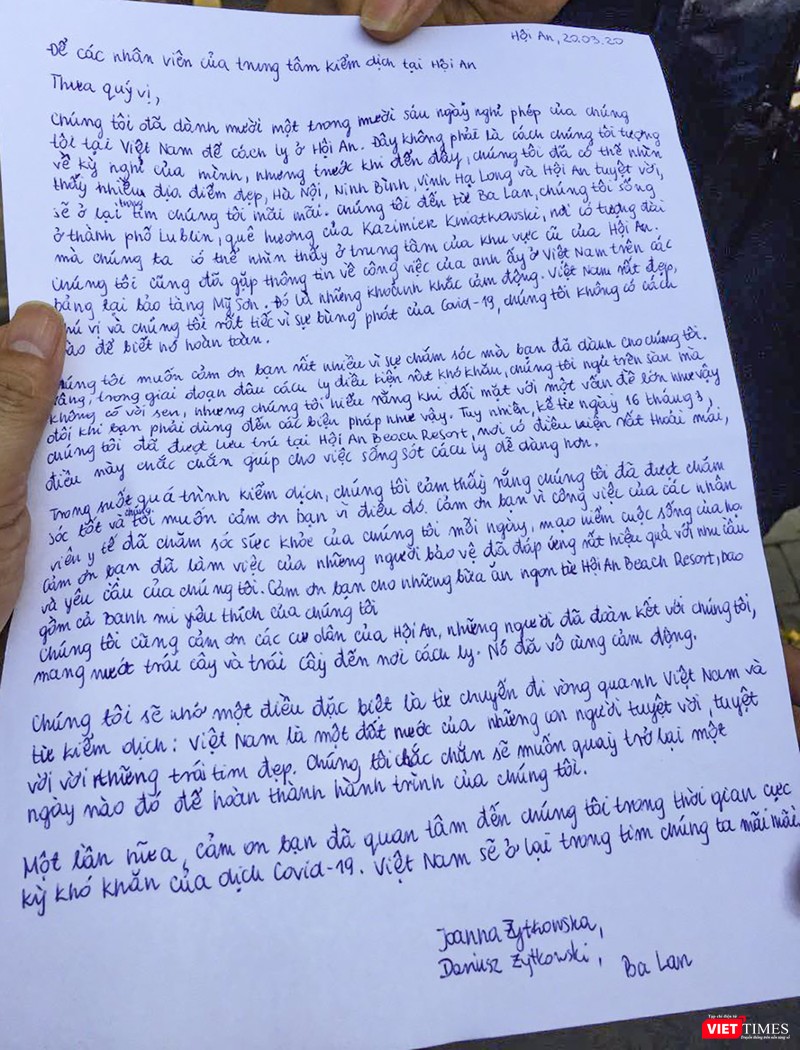 Hội An, 20.03.20
Để các nhân viên của trung tâm kiểm dịch tại Hội An
Thưa quý vị,
Chúng tôi đã dành mười một trong mười sáu ngày nghỉ phép của chúng
tôi tại Việt Nam để cách ly ở Hội An. Đây không phải là cách chúng tôi tượng
về kỳ nghỉ của mình, nhưng trước khi đến đây, chúng tôi đã có thể nhìn
thấy nhiều địa điểm đẹp, Hà Nội, Ninh Bình, Vịnh Hạ Long và Hội An tuyệt vời,
sẽ ở lại trong tim chúng tôi mãi mãi. Chúng tôi đến từ Ba Lan, chúng tôi sống
ở thành phố Lublin, quê hương của Kazimier Kwiatkowski, nơi có tượng đài
mà chúng ta có thể nhìn thấy ở trung tâm của khu vực cũ của Hội An.
Chúng tôi cũng đã gặp thông tin về công việc của anh ấy ở Việt Nam trên các
bảng tại bảo tàng Mỹ Sơn. Đó là những khoảnh khắc cảm động. Việt Nam rất đẹp,
thú vị và chúng tôi rất tiếc vì sự bùng phát của Covid-19, chúng tôi không có cách
nào để biết nó hoàn toàn.
Chúng tôi muốn cảm ơn bạn rất nhiều vì sự chăm sóc mà bạn đã dành cho chúng tôi.
trong giai đoạn đầu cách ly điều kiện rất khó khăn, chúng tôi ngủ trên sàn mà
không có vòi sen, nhưng chúng tôi hiểu rằng khi đối mặt với một vấn đề lớn như vậy
đôi khi bạn phải dùng đến các biện pháp như vậy. Tuy nhiên, kể từ ngày 16 tháng 3,
chúng tôi đã được lưu trú tại Hội An Beach Resort, nơi có điều kiện rất thoải mái,
điều này chắc chắn giúp cho việc sống sót cách ly dễ dàng hơn.
Trong suốt quá trình kiểm dịch, chúng tôi cảm thấy rằng chúng tôi đã được chăm
sóc tốt và chúng tôi muốn cảm ơn bạn vì điều đó. Cảm ơn bạn vì công việc của các nhân
viên y tế đã chăm sóc sức khỏe của chúng tôi mỗi ngày, mạo hiểm cuộc sống của họ
Cảm ơn bạn đã làm việc của những người bảo vệ đã đáp ứng rất hiệu quả với nhu cầu
và yêu cầu của chúng tôi. Cảm ơn bạn cho những bữa ăn ngon từ Hội An Beach Resort, bao
gồm cả Banh mi yêu thích của chúng tôi
Chúng tôi cũng cảm ơn các cư dân của Hội An, những người đã đoàn kết với chúng tôi,
mang nước trái cây và trái cây đến nơi cách ly. Nó đã vô cùng cảm động.
Chúng tôi sẽ nhớ một điều đặc biệt là từ chuyến đi vòng quanh Việt Nam và
từ kiểm dịch: Việt Nam là một đất nước của những con người tuyệt vời, tuyệt
vời với những trái tim đẹp. Chúng tôi chắc chắn sẽ muốn quay trở lại một
ngày nào đó để hoàn thành hành trình của chúng tôi.
Một lần nữa, cảm ơn bạn đã quan tâm đến chúng tôi trong thời gian cực
kỳ khó khăn của dịch Covid-19. Việt Nam sẽ ở lại trong tim chúng ta mãi mãi.
Joanna Żytkowska,
Dariusz Żytkowski, Ba Lan
Tạp chí điện tử
VIETTIMES